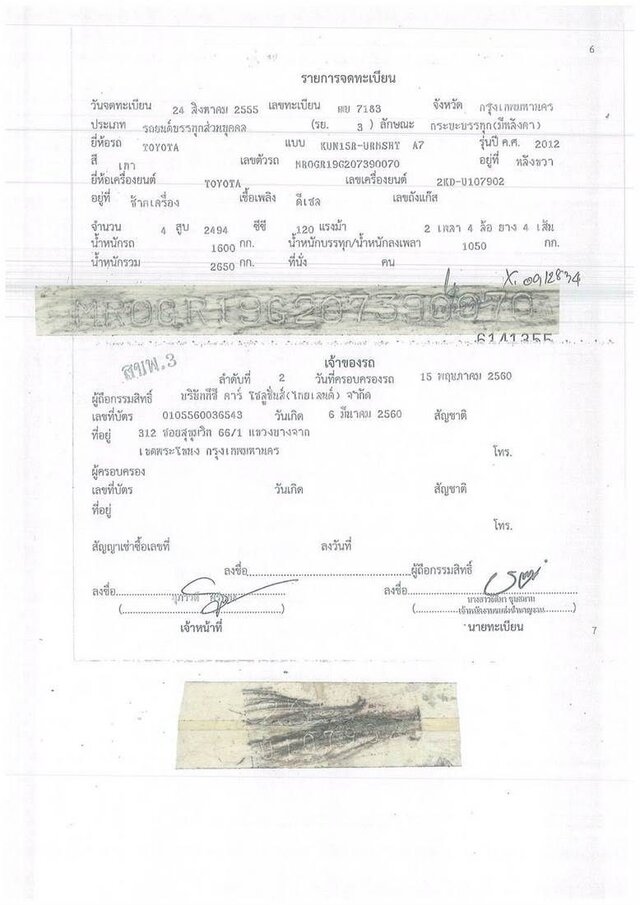 6
รายการจดทะเบียน
วันจดทะเบียน 24 สิงหาคม 2555 เลขทะเบียน 7183 จังหวัด กรุงเทพมหานคร
ประเภท รถยนต์บรรทุกส่วนบุคคล (รย. 3 ) ลักษณะ กระบะบรรทุก(มีหลังคา)
ยี่ห้อรถ TOYOTA แบบ KUN15R-URMSHT A7 รุ่นปี ค.ศ. 2012
สี เทา เลขตัวรถ MR0GR19G207390070 อยู่ที่ หลังขวา
ยี่ห้อเครื่องยนต์ TOYOTA เลขเครื่องยนต์ 2KD-U107902
อยู่ที่ ซ้ายเครื่อง เชื้อเพลิง ดีเซล เลขถังแก๊ส
จำนวน 4 สูบ 2494 ซีซี 120 แรงม้า 2 เพลา 4 ล้อ ยาง 4 เส้น
น้ำหนักรถ 1600 กก. น้ำหนักบรรทุก/น้ำหนักลงเพลา 1050 กก.
น้ำหนักรวม 2650 กก. ที่นั่ง คน
X. 0912834
MR0GR19G207390070
6141355
สขพ.3
เจ้าของรถ
ลำดับที่ 2 วันที่ครอบครองรถ 15 พฤษภาคม 2560
ผู้ถือกรรมสิทธิ์ คาร์ โซลูชั่นส์(ไทยแลนด์) จำกัด
เลขที่บัตร 0105560036543 วันเกิด 6 มีนาคม 2560 สัญชาติ
ที่อยู่ 312 ซอยสุขุมวิท 66/1 แขวงบางจาก
เขตพระโขนง กรุงเทพมหานคร โทร.
ผู้ครอบครอง
เลขที่บัตร วันเกิด สัญชาติ
ที่อยู่
โทร.
สัญญาเช่าซื้อเลขที่ ลงวันที่
ลงชื่อ ผู้ถือกรรมสิทธิ์
ลงชื่อ ลงชื่อ
เจ้าหน้าที่ นายทะเบียน 7